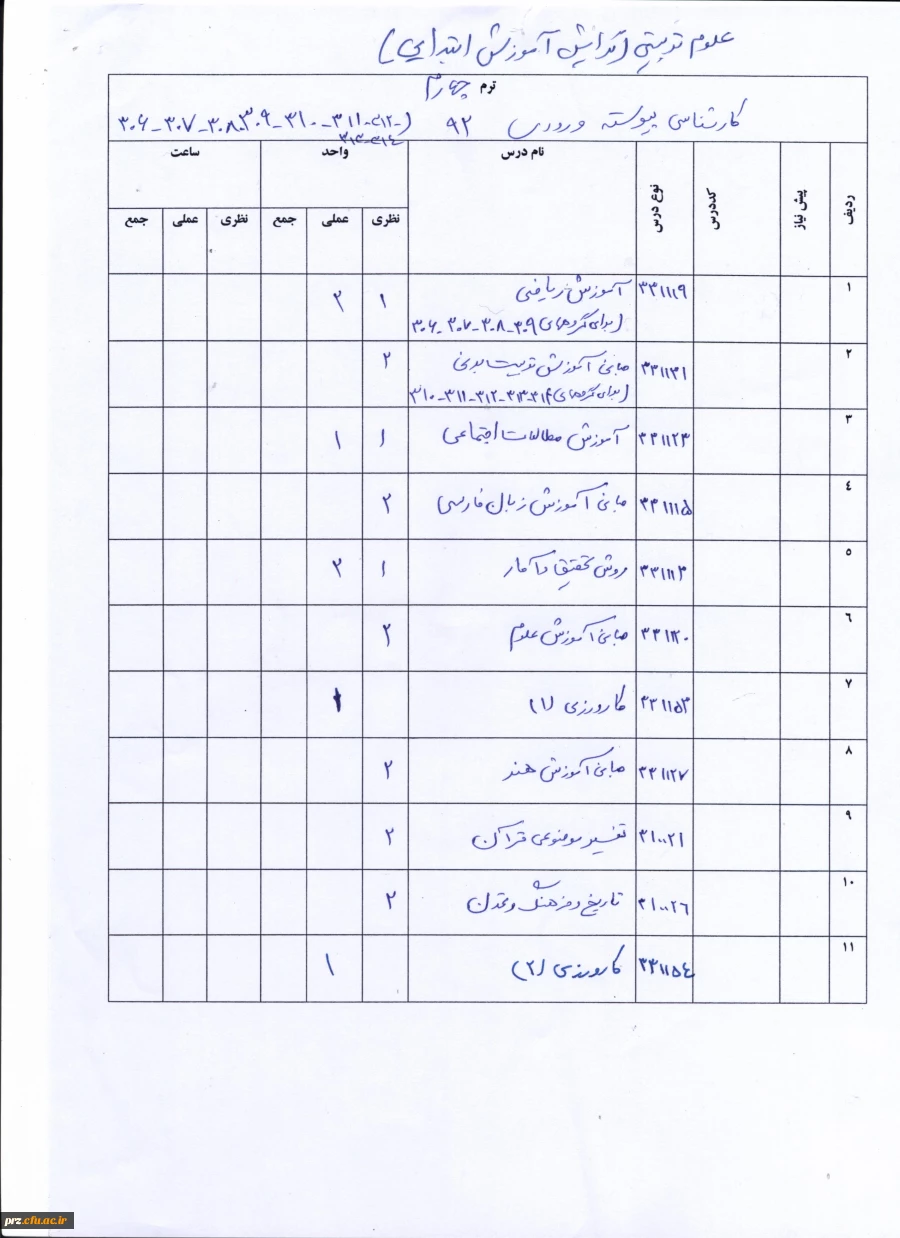 علوم تربیتی (گرایش آموزش ابتدایی)
ترم چهارم
کارشناسی پیوسته ورودی ۹۲ (۳۰۶-۳۰۷-۳۰۸-۳۰۹-۳۱۰-۳۱۱-۳۱۲-
۳۱۳-۳۱۴
ردیف پیش نیاز کددرس نوع درس نام درس واحد ساعت
نظری عملی جمع نظری عملی جمع
۱ ۳۳۱۱۱۹ آموزش ریاضی ۱ ۲
(برای گروههای ۳۰۹-۳۰۸-۳۰۷-۳۰۶
۲ ۳۳۱۱۳۱ مبانی آموزش تربیت بدنی ۲
(برای گروههای ۳۱۴-۳۱۳-۳۱۲-۳۱۱-۳۱۰
۳ ۳۳۱۱۲۳ آموزش مطالعات اجتماعی ۱ ۱
٤ ۳۳۱۱۱۵ مبانی آموزش زبان فارسی ۲
۵ ۳۳۱۱۱۳ روش تحقیق و آمار ۱ ۲
٦ ۳۳۱۱۲۰ مبانی آموزش علوم ۲
۷ ۳۳۱۱۵۳ کارورزی (۱) ۱
۸ ۳۳۱۱۲۷ مبانی آموزش هنر ۲
۹ ۳۱۰۰۲۱ تفسیر موضوعی قرآن ۲
۱۰ ۳۱۰۰۲۶ تاریخ و فرهنگ و تمدن ۲
۱۱ ۳۳۱۱۵٤ کارورزی (۲) ۱
prz.cfu.ac.ir